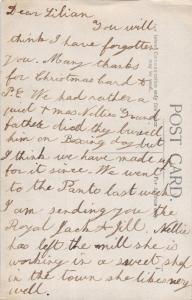 Dear Lilian
You will
think I have forgotten
you. Many thanks
for Christmas Card &
P.C. We had rather a
quiet Xmas Nellies Grand
father died they buried
him on Boxing day but
I think we have made up
for it since. We went
to the Panto last week
I am sending you the
Royal Jack & Jill. Nellie
has left the mill she is
working in a sweet shop
in the town she likes very
well.
POST CARD.